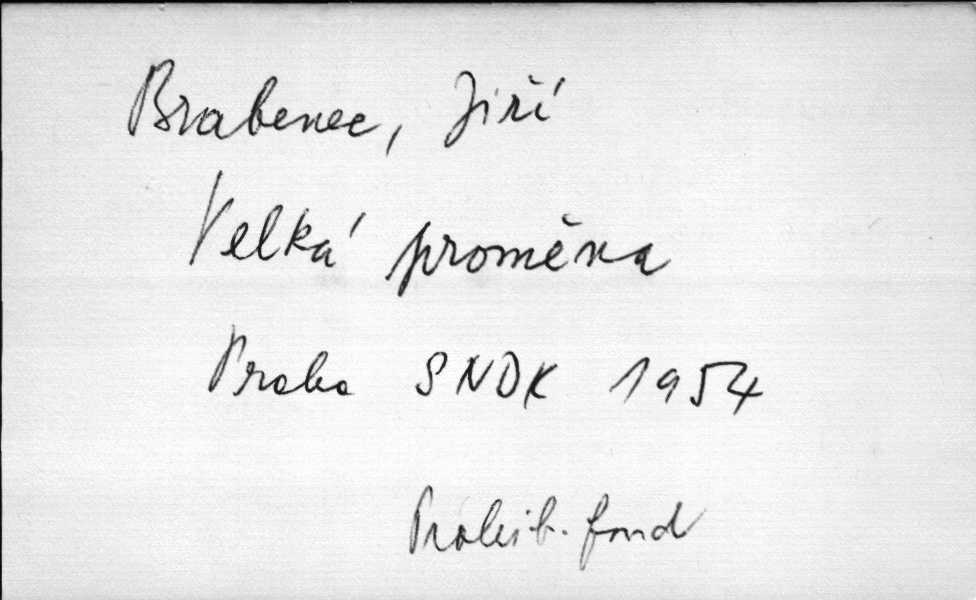 Brabenec, Jiří
Velká proměna
Praha SNDK 1954
Prohib. fond